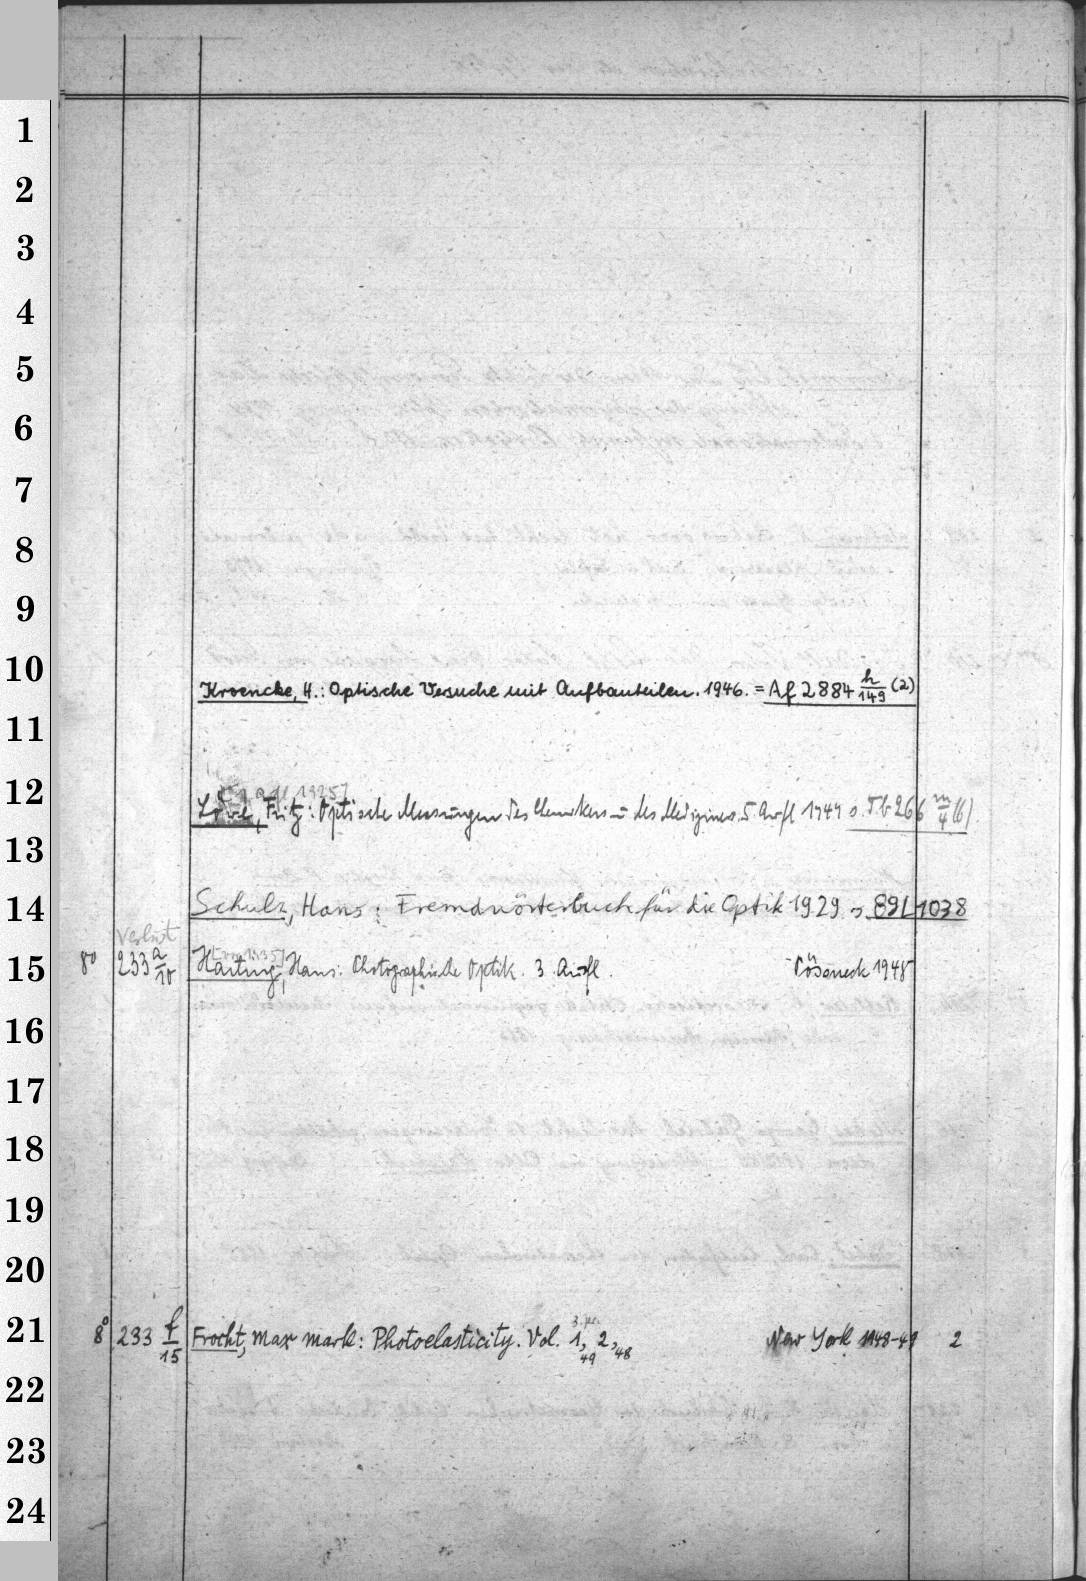 1
2
3
4
5
6
7
8
9
10
Kroencke, H.: Optische Versuche mit Aufbauteilen. 1946. = Af 2884 h/149 (2)
11
12
[1. Aufl 1925]
Löwe, Fritz: Optische Messungen des Chemikers u des Mediziners. 5. Aufl 1949 s. Tb 266 m/4 (6).
13
14 Schulz, Hans: Fremdwörterbuch für die Optik 1929 s 89L 1038
Verlust
15 8° 233 a/10 Harting, Hans: Photographische Optik. 3. Aufl. Pösneck 1948
16
17
18
19
20
21 8° 233 f/15 Frocht, Max Mark: Photoelasticity. Vol. 1,49 2,48 New York 1948-49 2
22
23
24